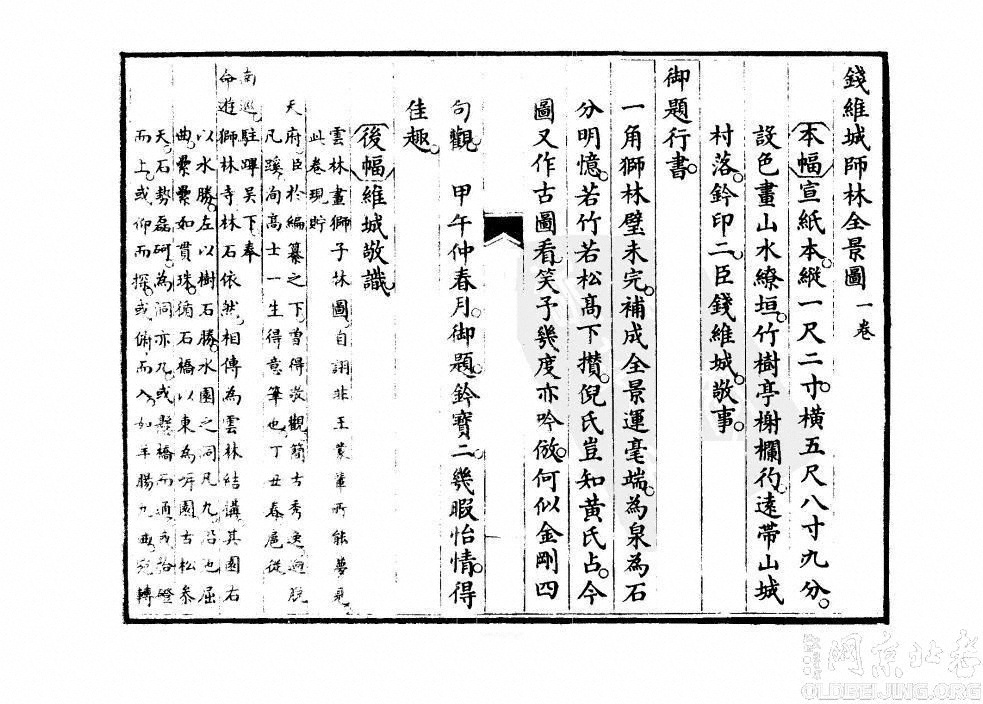 錢維城師林全景圖一卷
本幅宣紙本。縱一尺二寸。橫五尺八寸九分。
設色畫山水繚垣。竹樹亭榭欄彴。遠帶山城
村落。鈐印二。臣錢維城。敬事。
御題行書。
一角獅林璧未完。補成全景運毫端。為泉為石
分明憶。若竹若松高下攢。倪氏豈知黃氏占。今
圖又作古圖看。笑予幾度亦吟倣。何似金剛四
句觀。 甲午仲春月。御題。鈐寶二。幾暇怡情。得
佳趣。
後幅維城敬識
雲林畫獅子林圖。自詡非王蒙輩所能夢見。
此卷現貯
天府。臣於編纂之下曾得敬觀。簡古秀逸迥脫
凡蹊。洵高士一生得意筆也。丁丑春扈從
南巡。駐蹕吳下。奉
命遊獅林寺。林石依然。相傳為雲林結講。其園右
以水勝。左以樹石勝。水園之洞凡九。沿池屈
曲。纍纍如貫珠。循石橋以東為園。古松參
天。石勢磊砢。為洞亦九。或懸橋而通。或拾磴
而上。或仰而探。或俯而入。如羊腸九曲。宛轉
老北京网
OLDBEIJING.ORG